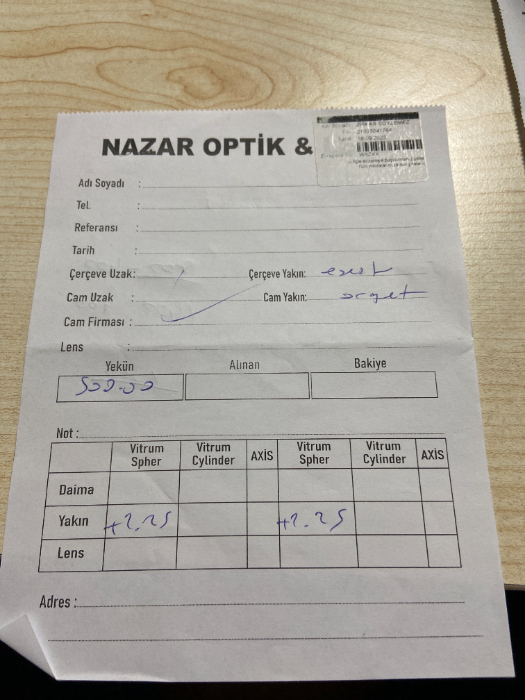 NAZAR OPTİK &
Adı Soyadı :
Tel. :
Referansı :
Tarih :
Çerçeve Uzak: Çerçeve Yakın:
Cam Uzak : Cam Yakın:
Cam Firması :
Lens :
Yekün Alınan Bakiye
500.00
Not :
Vitrum Spher Vitrum Cylinder AXİS Vitrum Spher Vitrum Cylinder AXİS
Daima
Yakın +2.25 +2.25
Lens
Adres :